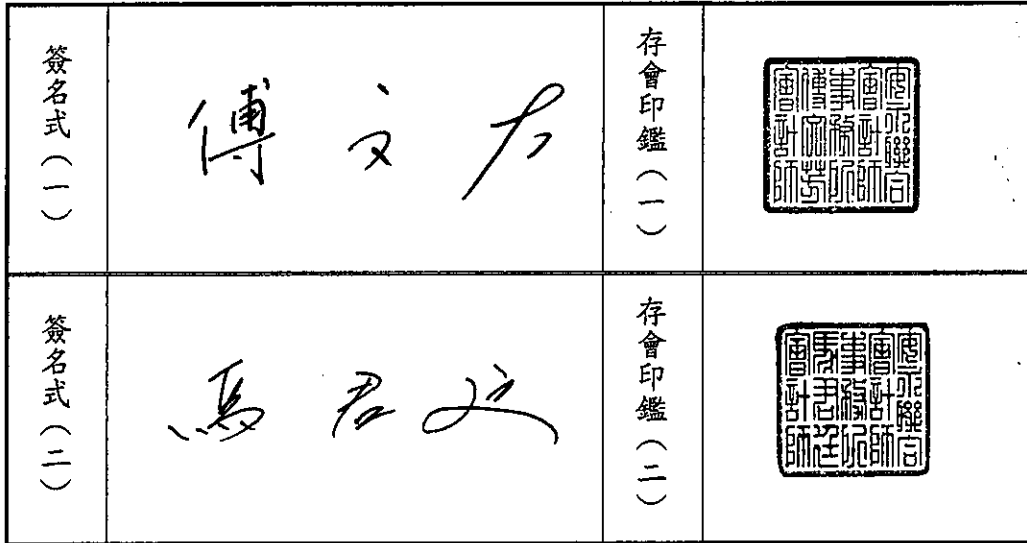 簽名式（一）
傅文芳
存會印鑑（一）
安永聯合
會計師
事務所
傅文芳
會計師
簽名式（二）
馬君廷
存會印鑑（二）
安永聯合
會計師
事務所
馬君廷
會計師